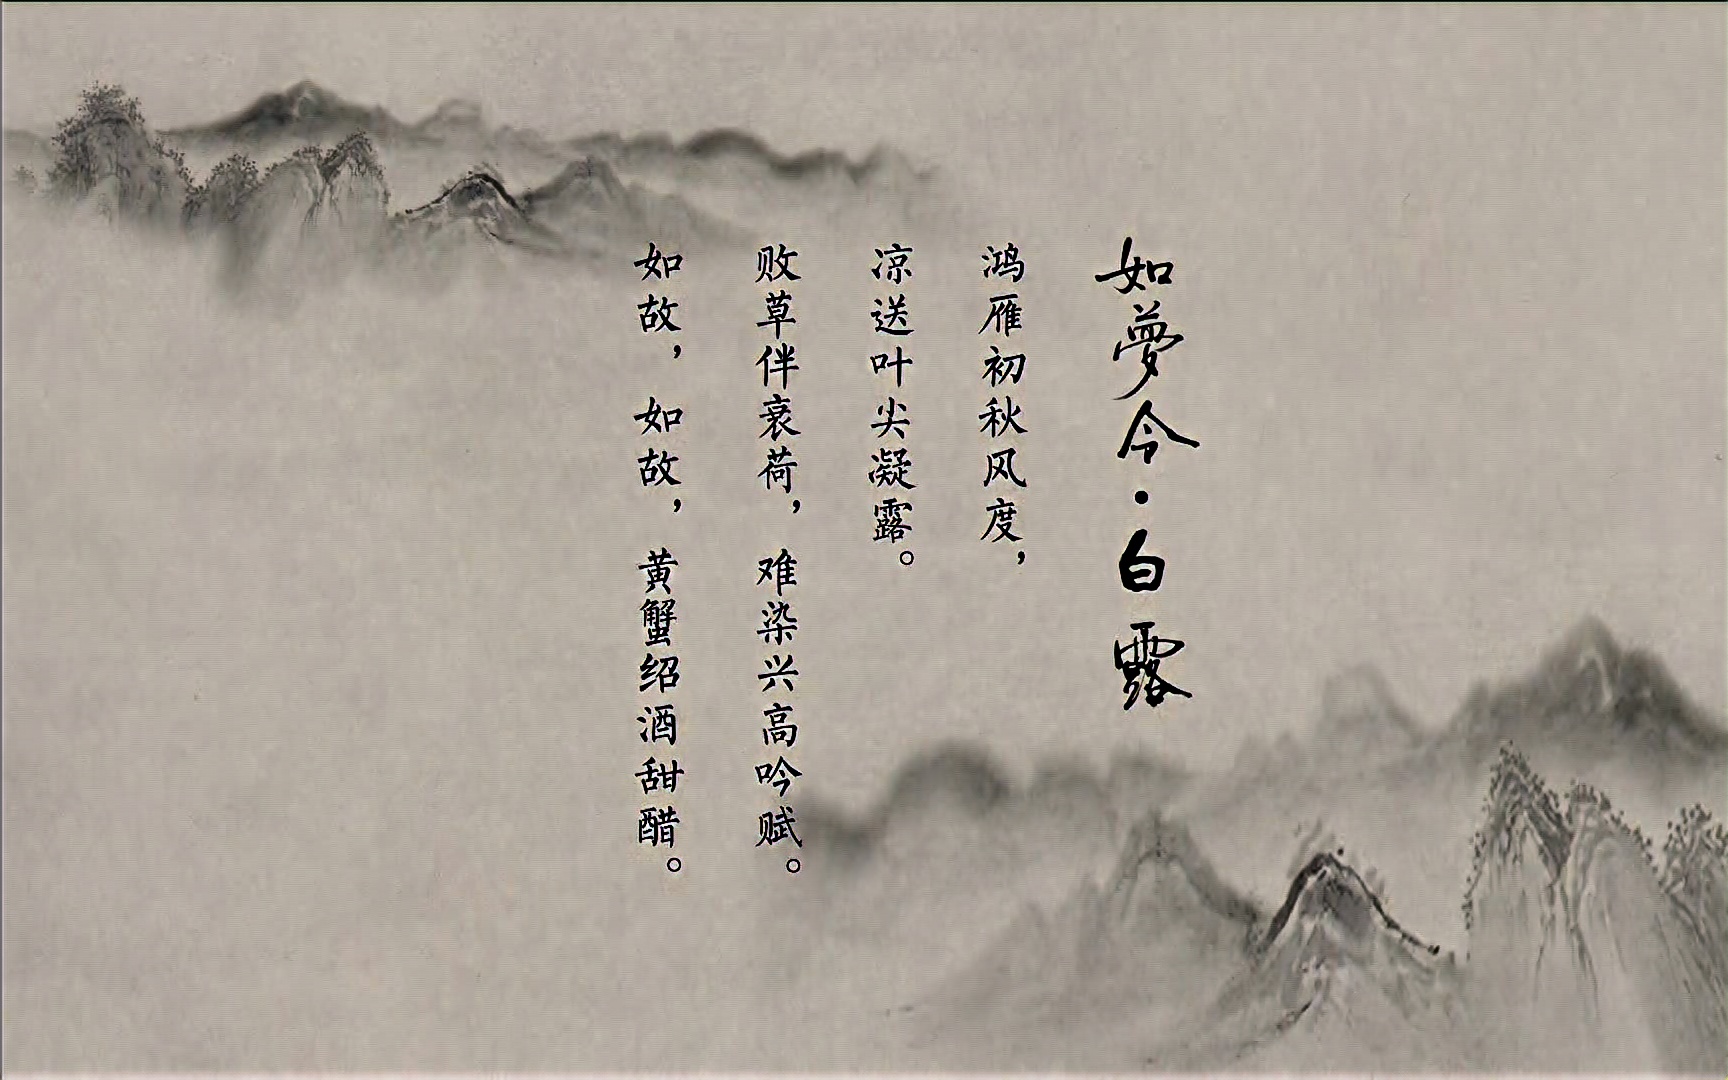 如夢令·白露
鸿雁初秋风度，
凉送叶尖凝露。
败草伴衰荷，难染兴高吟赋。
如故，如故，黄蟹绍酒甜醋。